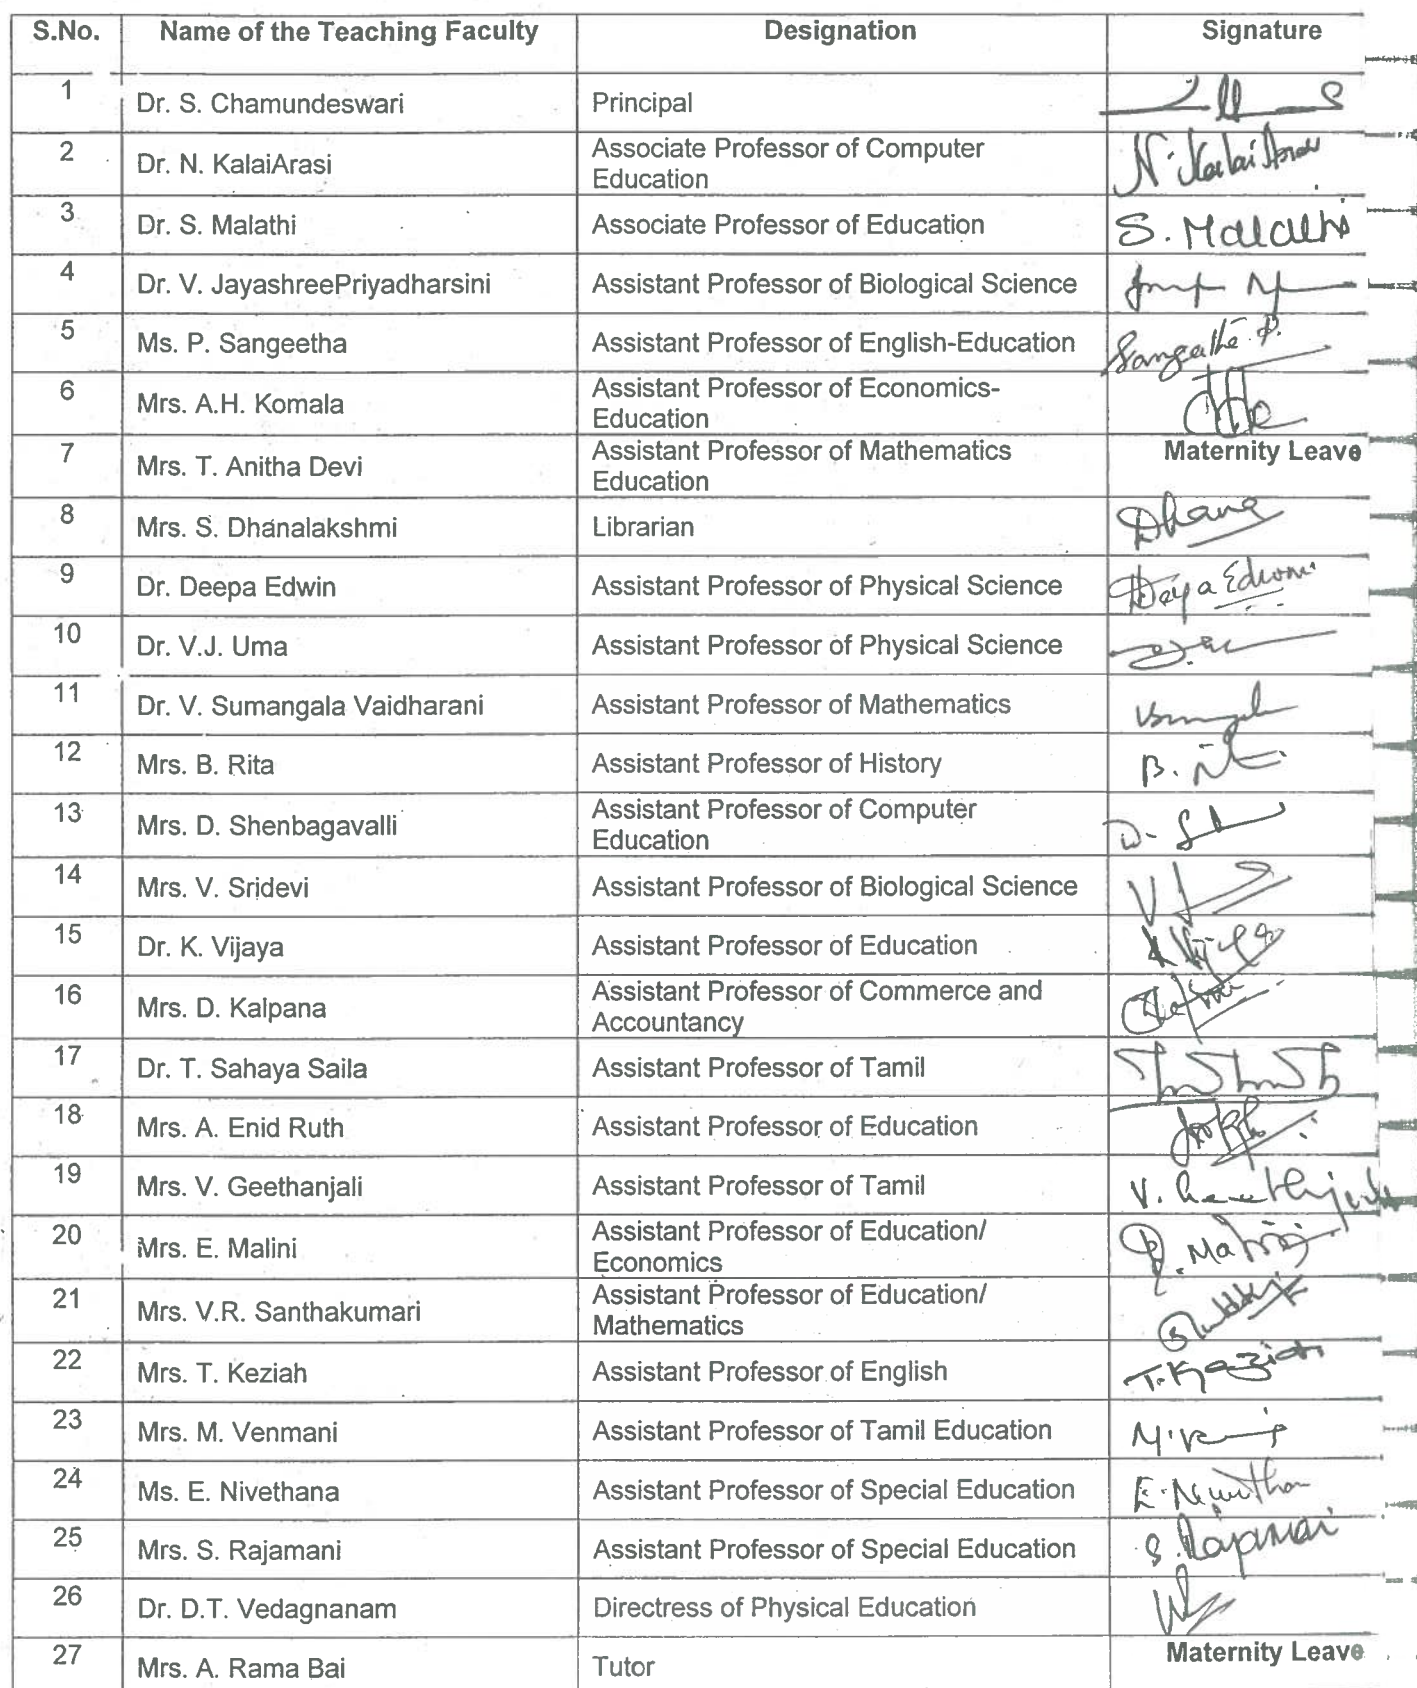 S.No. Name of the Teaching Faculty Designation Signature
1 Dr. S. Chamundeswari Principal
2 Dr. N. KalaiArasi Associate Professor of Computer
Education N. KalaiArasi
3 Dr. S. Malathi Associate Professor of Education S. Malathi
4 Dr. V. JayashreePriyadharsini Assistant Professor of Biological Science
5 Ms. P. Sangeetha Assistant Professor of English-Education Sangeetha. P.
6 Mrs. A.H. Komala Assistant Professor of Economics-
Education
7 Mrs. T. Anitha Devi Assistant Professor of Mathematics
Education Maternity Leave
8 Mrs. S. Dhanalakshmi Librarian Dhana
9 Dr. Deepa Edwin Assistant Professor of Physical Science Deepa Edwin
10 Dr. V.J. Uma Assistant Professor of Physical Science
11 Dr. V. Sumangala Vaidharani Assistant Professor of Mathematics
12 Mrs. B. Rita Assistant Professor of History B.
13 Mrs. D. Shenbagavalli Assistant Professor of Computer
Education D.
14 Mrs. V. Sridevi Assistant Professor of Biological Science
15 Dr. K. Vijaya Assistant Professor of Education
16 Mrs. D. Kalpana Assistant Professor of Commerce and
Accountancy
17 Dr. T. Sahaya Saila Assistant Professor of Tamil
18 Mrs. A. Enid Ruth Assistant Professor of Education
19 Mrs. V. Geethanjali Assistant Professor of Tamil V. Geethanjali
20 Mrs. E. Malini Assistant Professor of Education/
Economics
21 Mrs. V.R. Santhakumari Assistant Professor of Education/
Mathematics
22 Mrs. T. Keziah Assistant Professor of English T. Keziah
23 Mrs. M. Venmani Assistant Professor of Tamil Education
24 Ms. E. Nivethana Assistant Professor of Special Education E. Nivethana
25 Mrs. S. Rajamani Assistant Professor of Special Education S. Rajamani
26 Dr. D.T. Vedagnanam Directress of Physical Education
27 Mrs. A. Rama Bai Tutor Maternity Leave